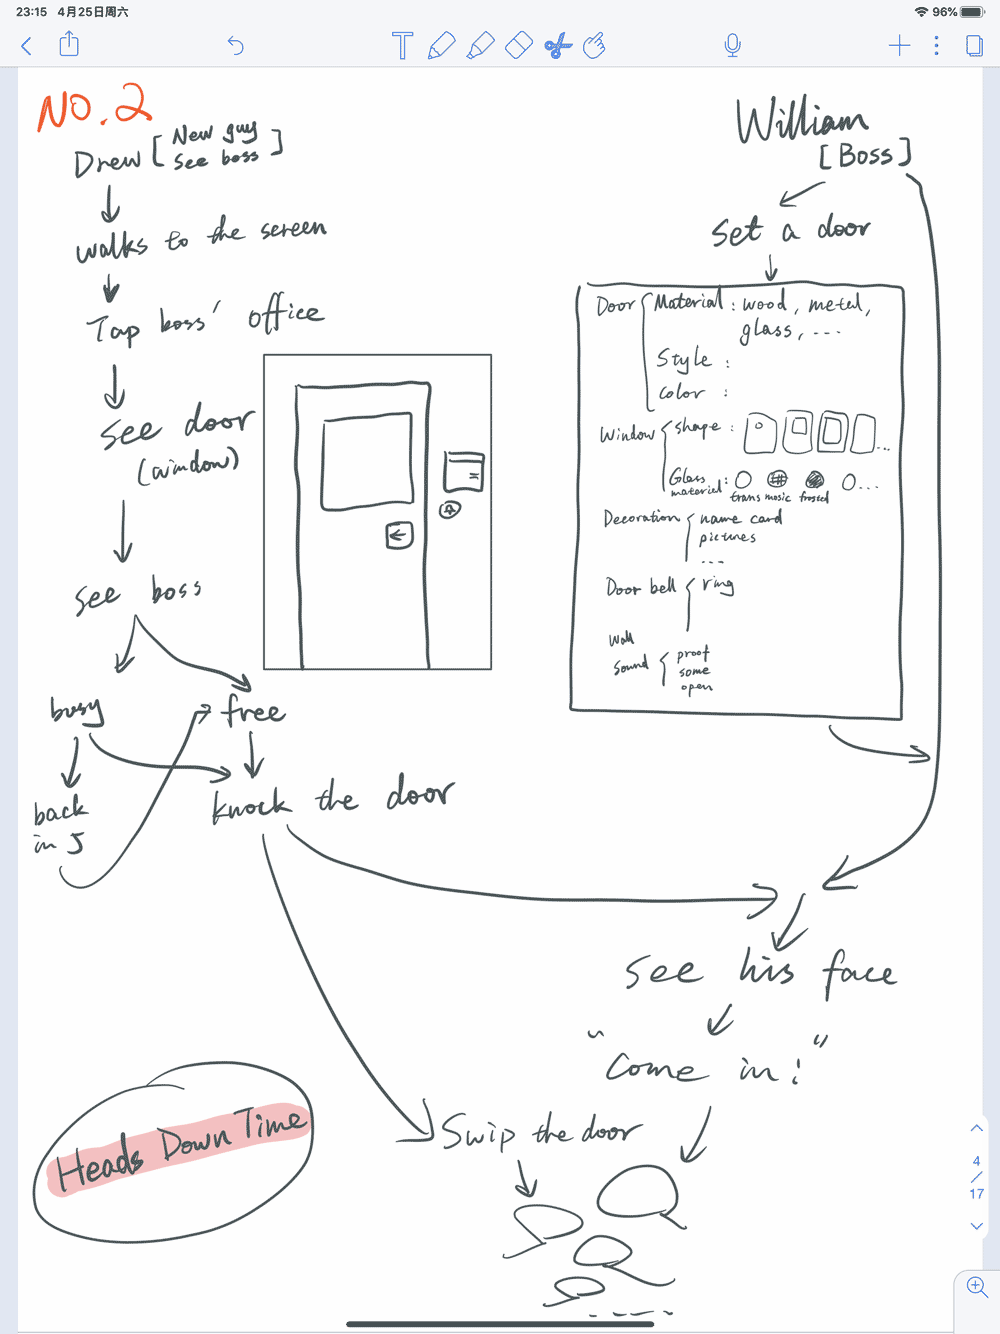 23:15 4月25日周六
96%
NO.2
Drew [New guy
See boss]
walks to the screen
Tap boss' office
see door
(window)
see boss
busy
free
back
in 5
knock the door
William
[Boss]
set a door
Door { Material : wood, metel,
glass, ...
Style :
color :
Window { shape : ...
Glass
material : ...
trans mosic frosted
Decoration { name card
pictures
...
Door bell { ring
Wall
sound { proof
some
open
see his face
"Come in!"
Swip the door
Heads Down Time
4
/
17